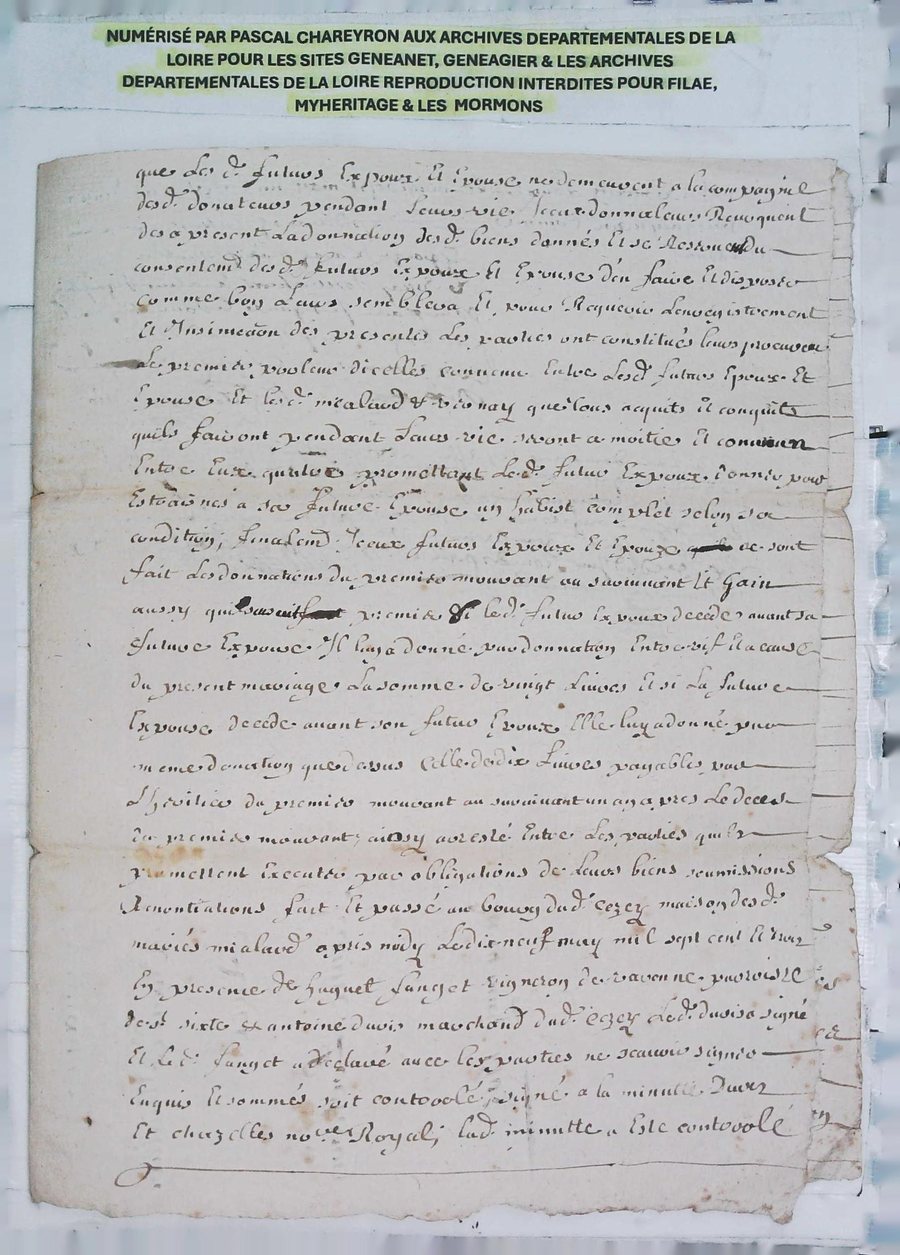 NUMÉRISÉ PAR PASCAL CHAREYRON AUX ARCHIVES DEPARTEMENTALES DE LA
LOIRE POUR LES SITES GENEANET, GENEAGIER & LES ARCHIVES
DEPARTEMENTALES DE LA LOIRE REPRODUCTION INTERDITES POUR FILAE,
MYHERITAGE & LES MORMONS
que Les d. futurs Expoux Et Epouse ne demeurent a la compagnie
desd. donateurs pendant Leurs vie Iceux donnateurs Revoquent
des a present La donnation desd. biens donnés Et se
consentemt. desd. futurs Expoux Et Epouse d'en faire Et disposer
comme bon Leurs semblera Et pour Requerir Lenregistrement
Et Insinuaon des presentes Les parties ont constitués leurs procureurs
Le premier porteur dicelles convenu Entre Lesd. futurs Epoux Et
Epouse Et lesd. mialaud & vernay que tous acquits Et conquits
quils fairont pendant Leurs vie seront a moitié Et commun
Entre Eux quatre promettant Led. futur Expoux donner pour
Estraines a sa future Epouse un habist complet selon sa
condition, finalemt. Iceux futurs Expoux Et Epouze se sont
fait Les donnations du premier mourant au survivant Et Gain
aussy premier Si led. futur Expoux decede avant sa
future Expouse Il luy a donné par donnation Entre vif Et a cause
du present mariage La somme de vingt Livres Et si La future
Expouse decede avant son futur Epoux Elle luy a donné par
meme donation que dessus Celle de dix Livres payables par
Lheritier du premier mourant au survivant un an apres Le deces
du premier mourant, ainsy arresté Entre Les parties quils
promettent Executer par obligations de Leurs biens soumissions
Renontiations fait Et passé au bourg dud. Cezey maison desd.
mariés mialaud apris midy Le dix neuf may mil sept cent Et trois
En presence de huguet fanget vigneron de ravenne parroisse
de st. sixte & antoine duris marchand dud. Cezey Led. duris a signé
Et Led. fanget a declaré avec les parties ne scavoir signer
Enquis Et sommés soit controolé, signé a la minutte Durez
Et chazelles nore. Royal; lad. minutte a Esté controolé